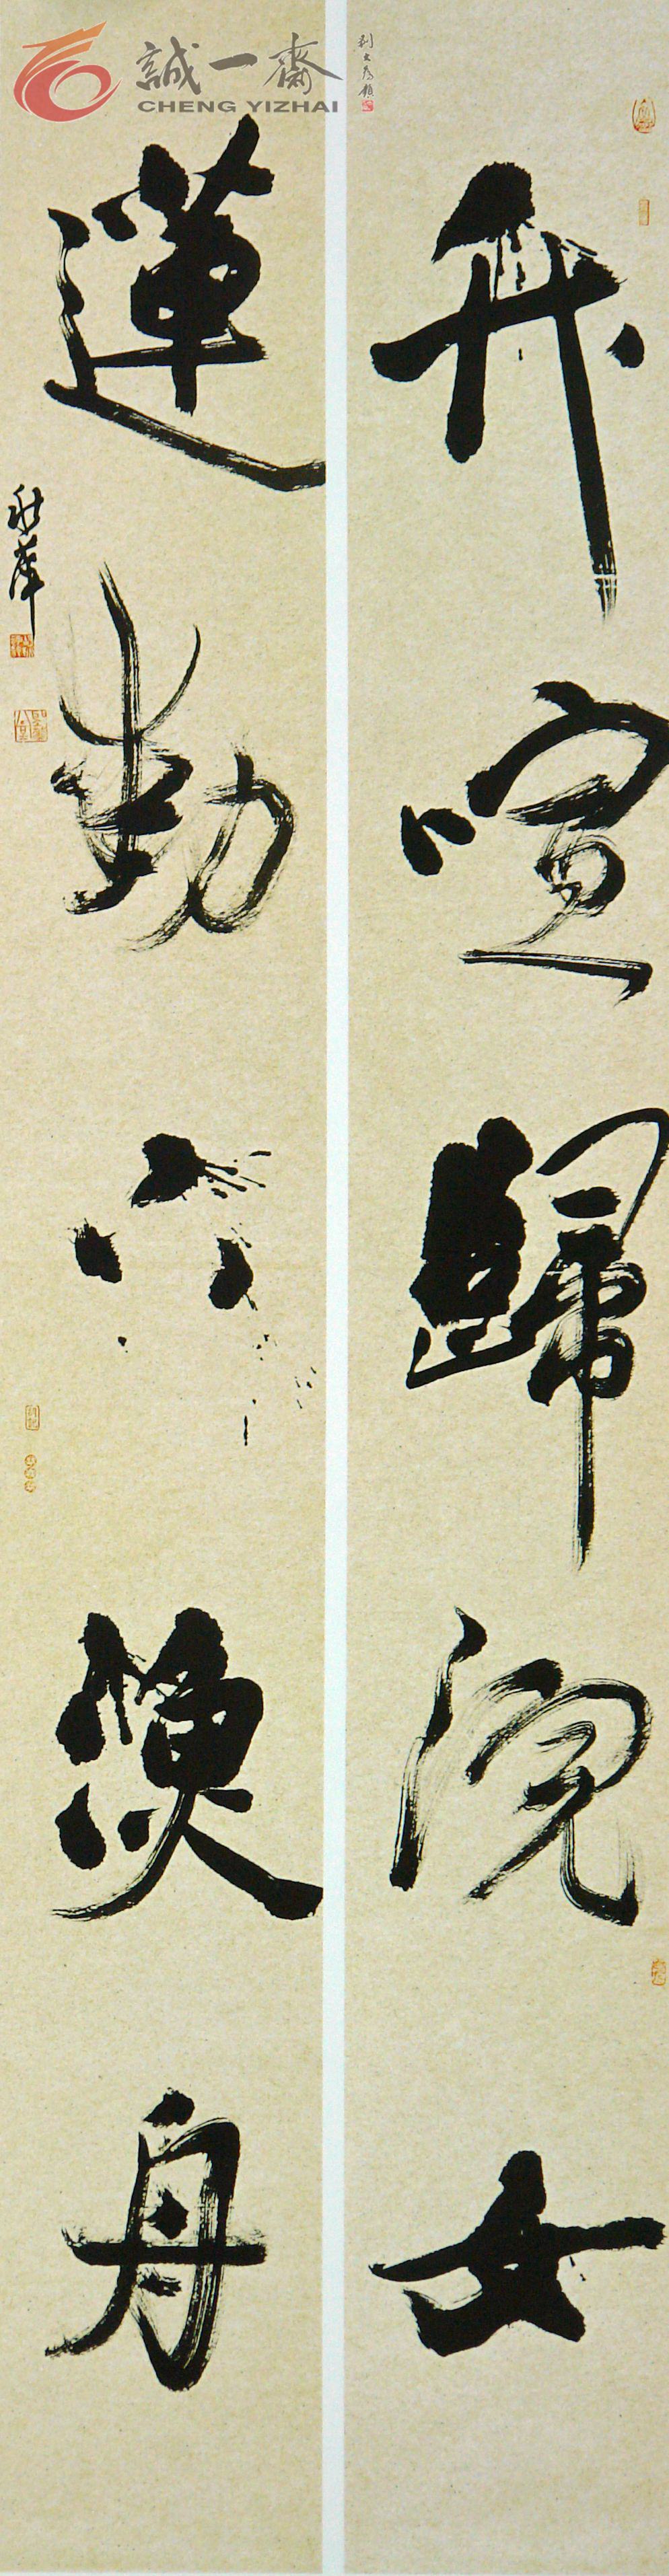 誠一齋
CHENG YIZHAI
竹喧歸浣女
蓮動下漁舟